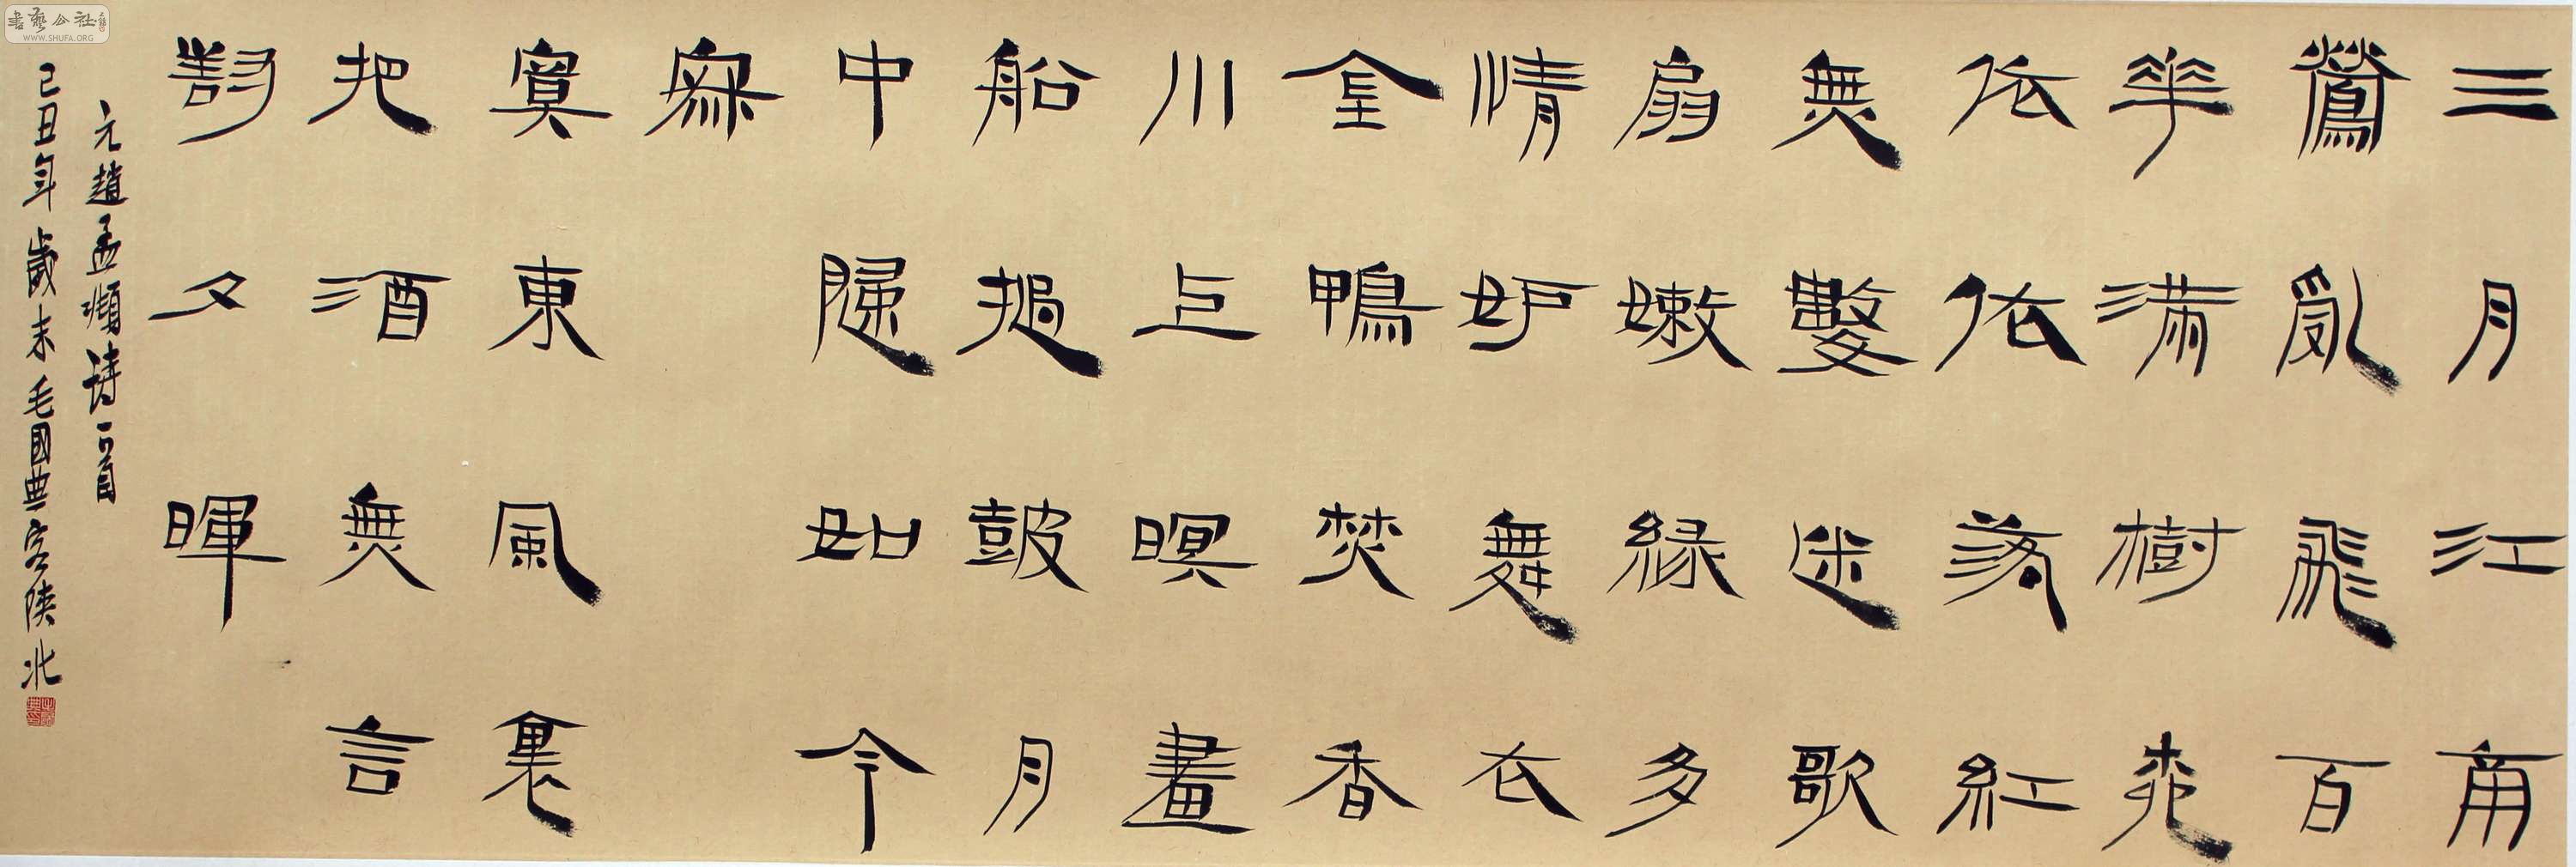 三月江南
鶯亂飛百
華滿樹柳
依依落紅
無數迷歌
扇嫩緑多
情妒舞衣
金鴨焚香
川上暝畫
船撾鼓月
中歸如今
寂
寞東風裏
把酒無言
對夕暉
元趙孟頫詩一首
己丑年歲末毛國典客陕北
書藝公社
WWW.SHUFA.ORG